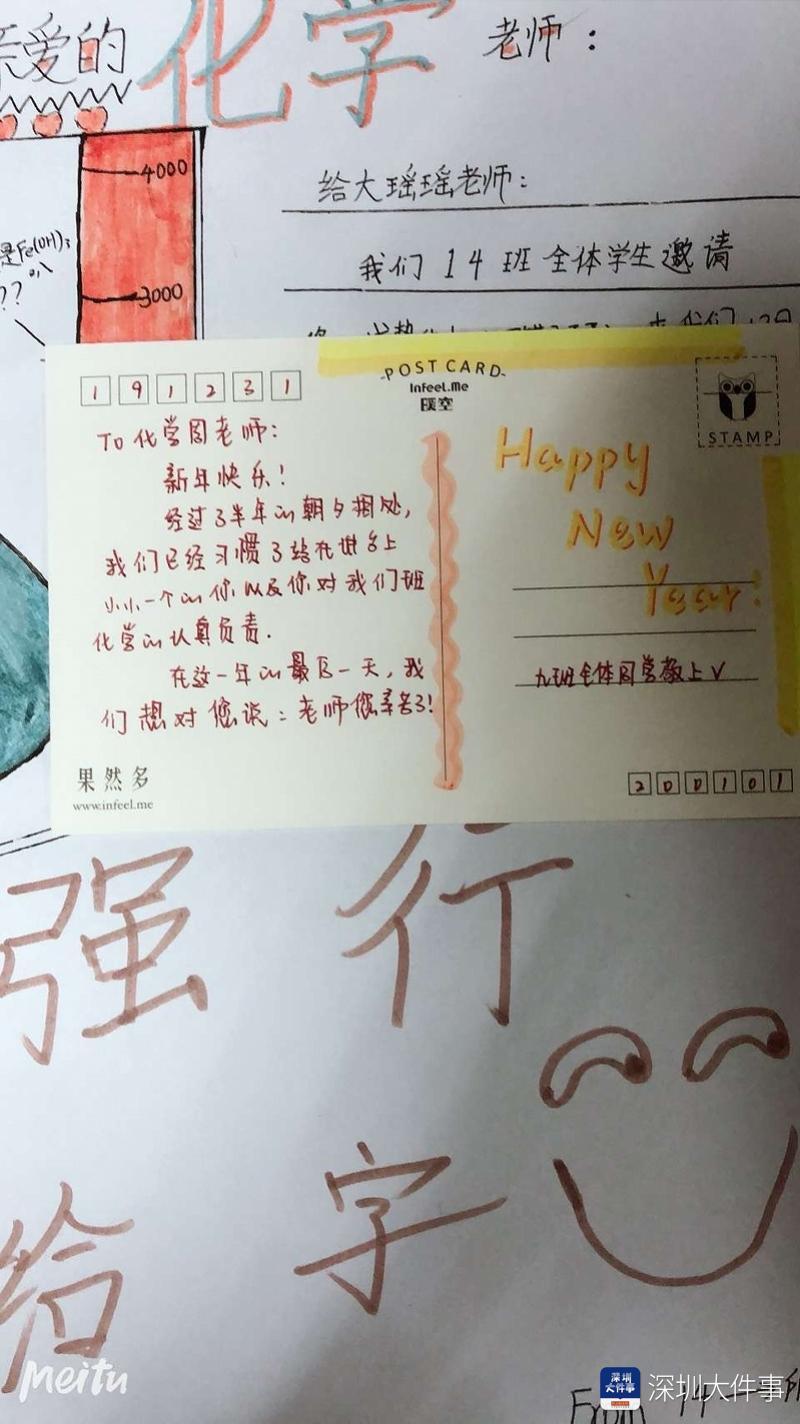 亲爱的
化学
老师：
给大瑶瑶老师：
我们14班全体学生邀请
4000
3000
是Fe(OH)3
??
191231
POST CARD
Infeel.me
STAMP
To 化学周老师：
新年快乐！
经过了半年的朝夕相处，
我们已经习惯了站在讲台上
小小一个的你以及你对我们班
化学的认真负责.
在这一年的最后一天，我
们想对您说：老师您辛苦了！
Happy
New
Year!
九班全体同学敬上√
果然多
www.infeel.me
200101
强行
给字
From 14
Meitu
深圳大件事
深圳大件事